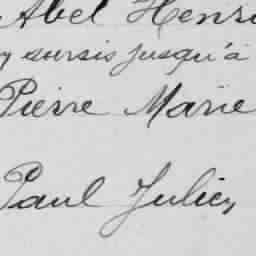 Abel Henri
sursis jusqu'à
Pierre Marie
Paul Julien